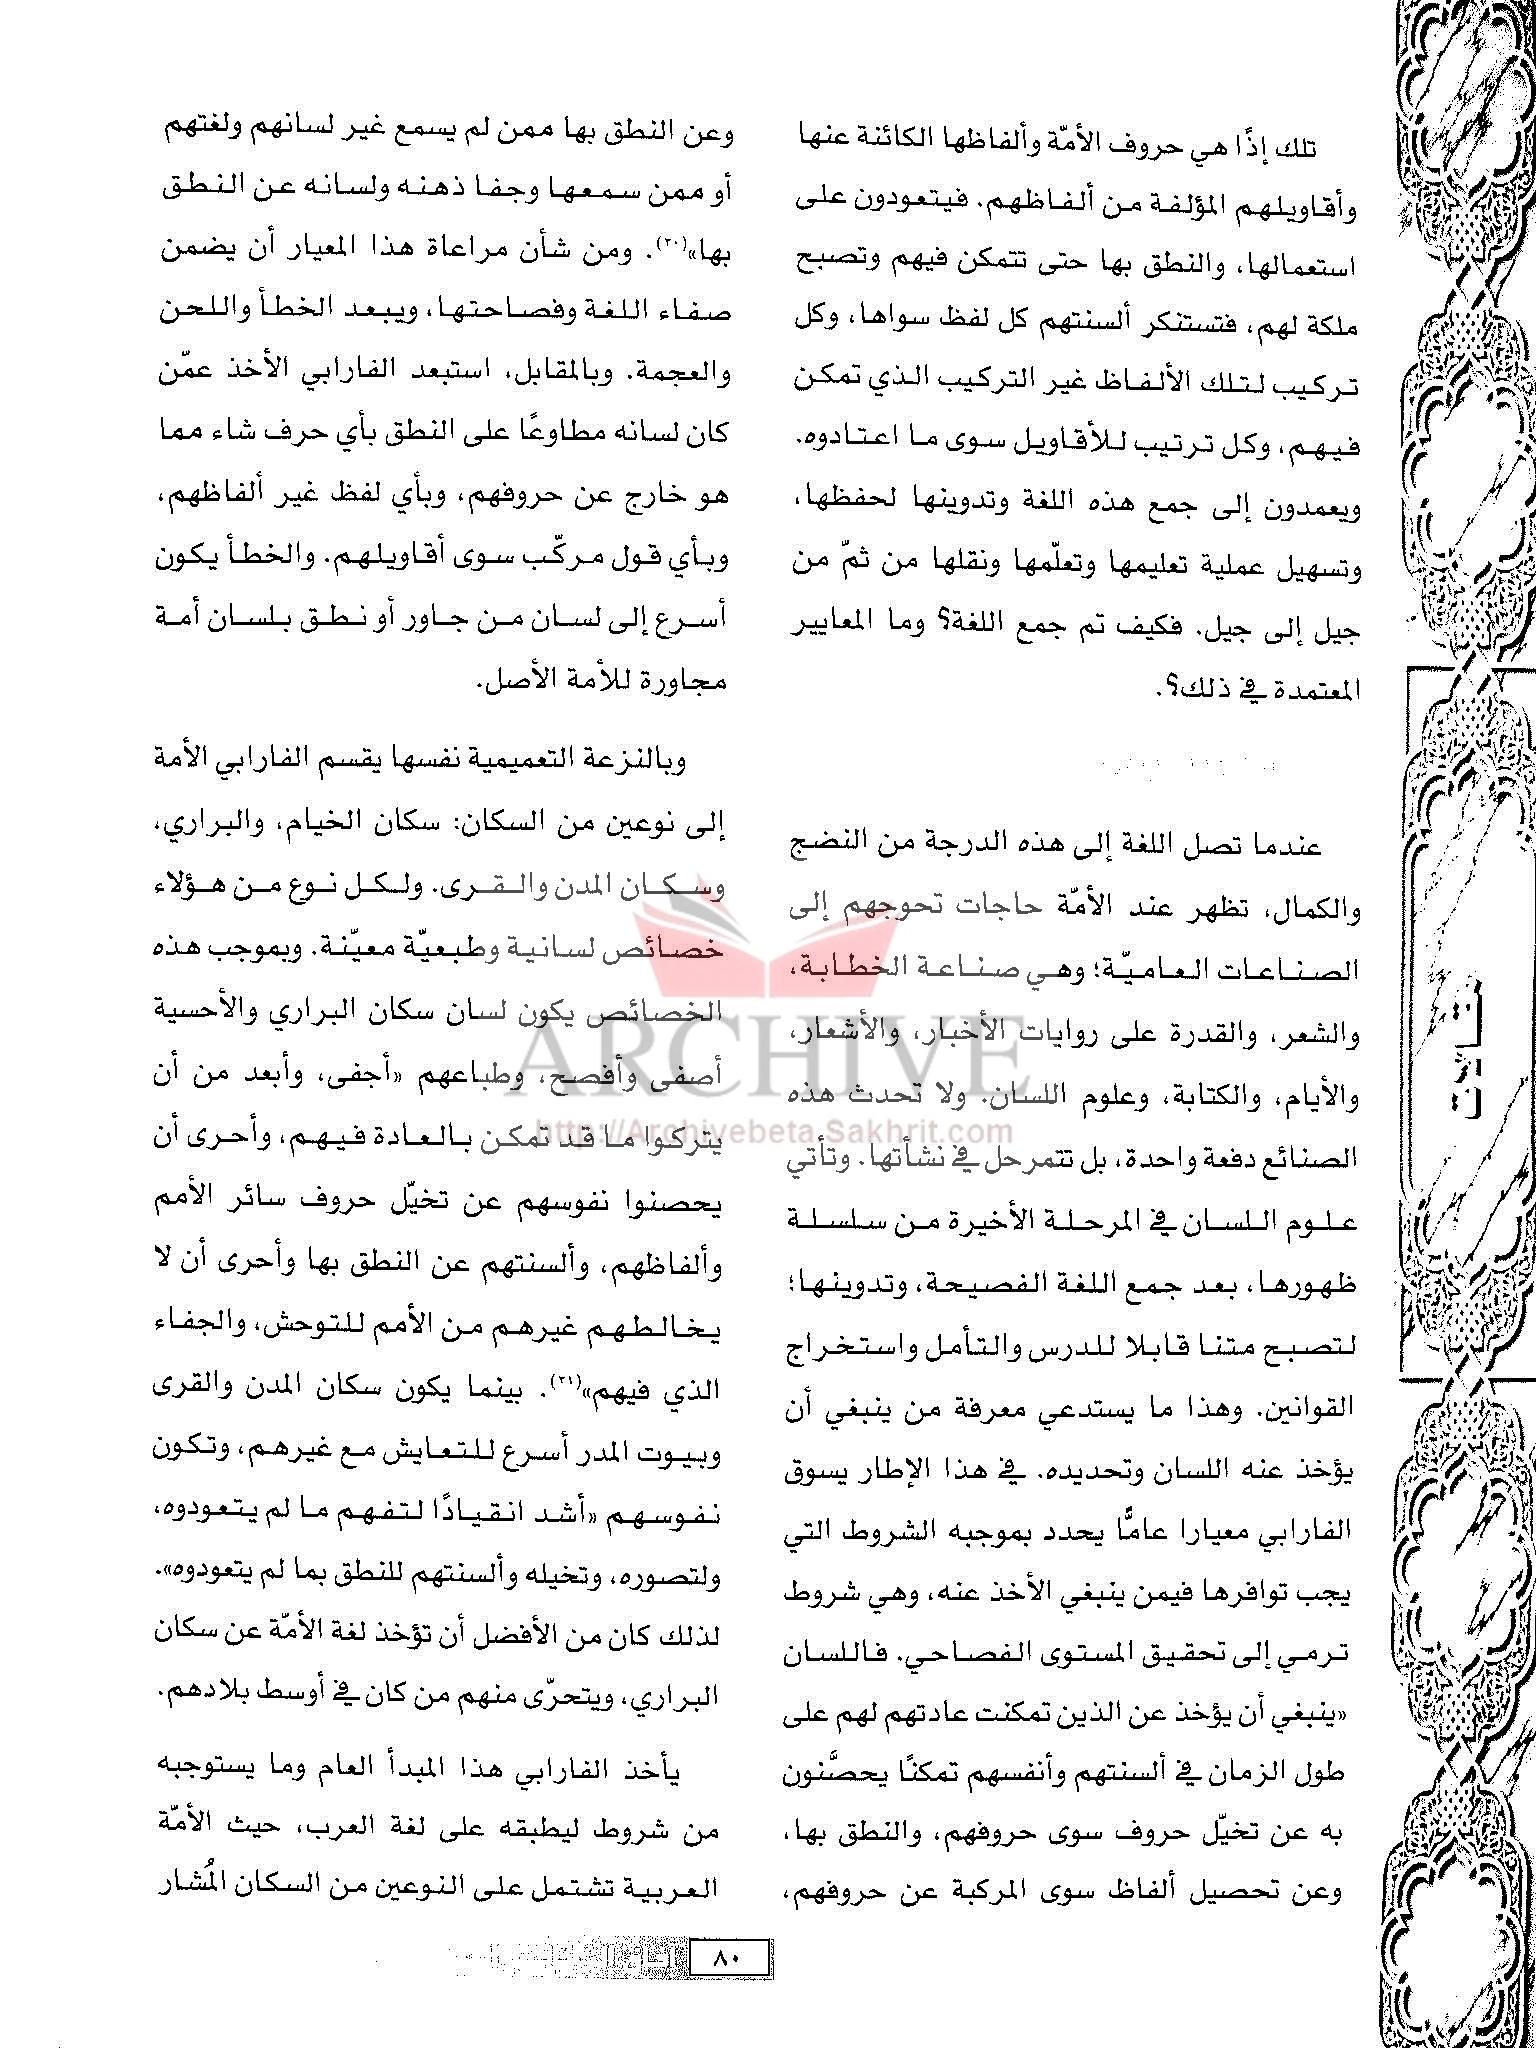 تلك إذًا هي حروف الأمّة وألفاظها الكائنة عنها
وأقاويلهم المؤلفة من ألفاظهم. فيتعودون على
استعمالها، والنطق بها حتى تتمكن فيهم وتصبح
ملكة لهم، فتستنكر ألسنتهم كل لفظ سواها، وكل
تركيب لتلك الألفاظ غير التركيب الذي تمكن
فيهم، وكل ترتيب للأقاويل سوى ما اعتادوه.
ويعمدون إلى جمع هذه اللغة وتدوينها لحفظها،
وتسهيل عملية تعليمها وتعلّمها ونقلها من ثمّ من
جيل إلى جيل. فكيف تم جمع اللغة؟ وما المعايير
المعتمدة في ذلك؟.
عندما تصل اللغة إلى هذه الدرجة من النضج
والكمال، تظهر عند الأمّة حاجات تحوجهم إلى
الصناعات العاميّة؛ وهي صناعة الخطابة،
والشعر، والقدرة على روايات الأخبار، والأشعار،
والأيام، والكتابة، وعلوم اللسان. ولا تحدث هذه
الصنائع دفعة واحدة، بل تتمرحل في نشأتها. وتأتي
علوم اللسان في المرحلة الأخيرة من سلسلة
ظهورها، بعد جمع اللغة الفصيحة، وتدوينها؛
لتصبح متنا قابلا للدرس والتأمل واستخراج
القوانين. وهذا ما يستدعي معرفة من ينبغي أن
يؤخذ عنه اللسان وتحديده. في هذا الإطار يسوق
الفارابي معيارا عامًّا يحدد بموجبه الشروط التي
يجب توافرها فيمن ينبغي الأخذ عنه، وهي شروط
ترمي إلى تحقيق المستوى الفصاحي. فاللسان
«ينبغي أن يؤخذ عن الذين تمكنت عادتهم لهم على
طول الزمان في ألسنتهم وأنفسهم تمكنًا يحصَّنون
به عن تخيّل حروف سوى حروفهم، والنطق بها،
وعن تحصيل ألفاظ سوى المركبة عن حروفهم،
وعن النطق بها ممن لم يسمع غير لسانهم ولغتهم
أو ممن سمعها وجفا ذهنه ولسانه عن النطق
بها»(٢٠). ومن شأن مراعاة هذا المعيار أن يضمن
صفاء اللغة وفصاحتها، ويبعد الخطأ واللحن
والعجمة. وبالمقابل، استبعد الفارابي الأخذ عمّن
كان لسانه مطاوعًا على النطق بأي حرف شاء مما
هو خارج عن حروفهم، وبأي لفظ غير ألفاظهم،
وبأي قول مركّب سوى أقاويلهم. والخطأ يكون
أسرع إلى لسان من جاور أو نطق بلسان أمة
مجاورة للأمة الأصل.
وبالنزعة التعميمية نفسها يقسم الفارابي الأمة
إلى نوعين من السكان: سكان الخيام، والبراري،
وسكان المدن والقرى. ولكل نوع من هؤلاء
خصائص لسانية وطبعيّة معيّنة. وبموجب هذه
الخصائص يكون لسان سكان البراري والأحسية
أصفى وأفصح، وطباعهم «أجفى، وأبعد من أن
يتركوا ما قد تمكن بالعادة فيهم، وأحرى أن
يحصنوا نفوسهم عن تخيّل حروف سائر الأمم
وألفاظهم، وألسنتهم عن النطق بها وأحرى أن لا
يخالطهم غيرهم من الأمم للتوحش، والجفاء
الذي فيهم»(٢١). بينما يكون سكان المدن والقرى
وبيوت المدر أسرع للتعايش مع غيرهم، وتكون
نفوسهم «أشد انقيادًا لتفهم ما لم يتعودوه،
ولتصوره، وتخيله وألسنتهم للنطق بما لم يتعودوه».
لذلك كان من الأفضل أن تؤخذ لغة الأمّة عن سكان
البراري، ويتحرّى منهم من كان في أوسط بلادهم.
يأخذ الفارابي هذا المبدأ العام وما يستوجبه
من شروط ليطبقه على لغة العرب، حيث الأمّة
العربية تشتمل على النوعين من السكان المُشار
ARCHIVE
http://Archivebeta.Sakhrit.com
مقالات
٨٠